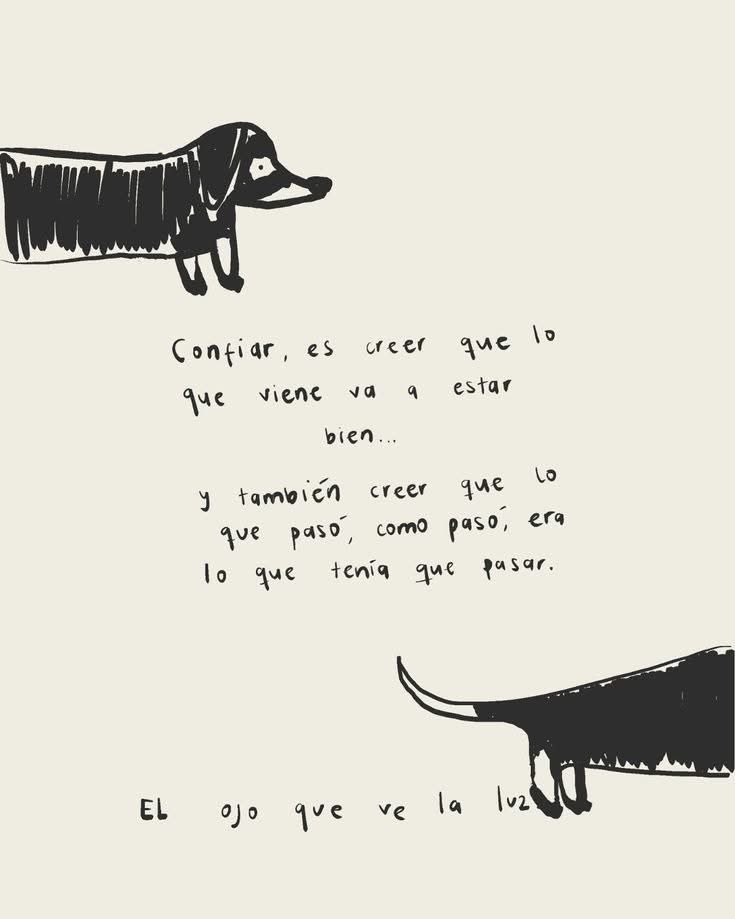 Confiar, es creer que lo
que viene va a estar
bien...
y también creer que lo
que pasó, como pasó, era
lo que tenía que pasar.
EL ojo que ve la luz